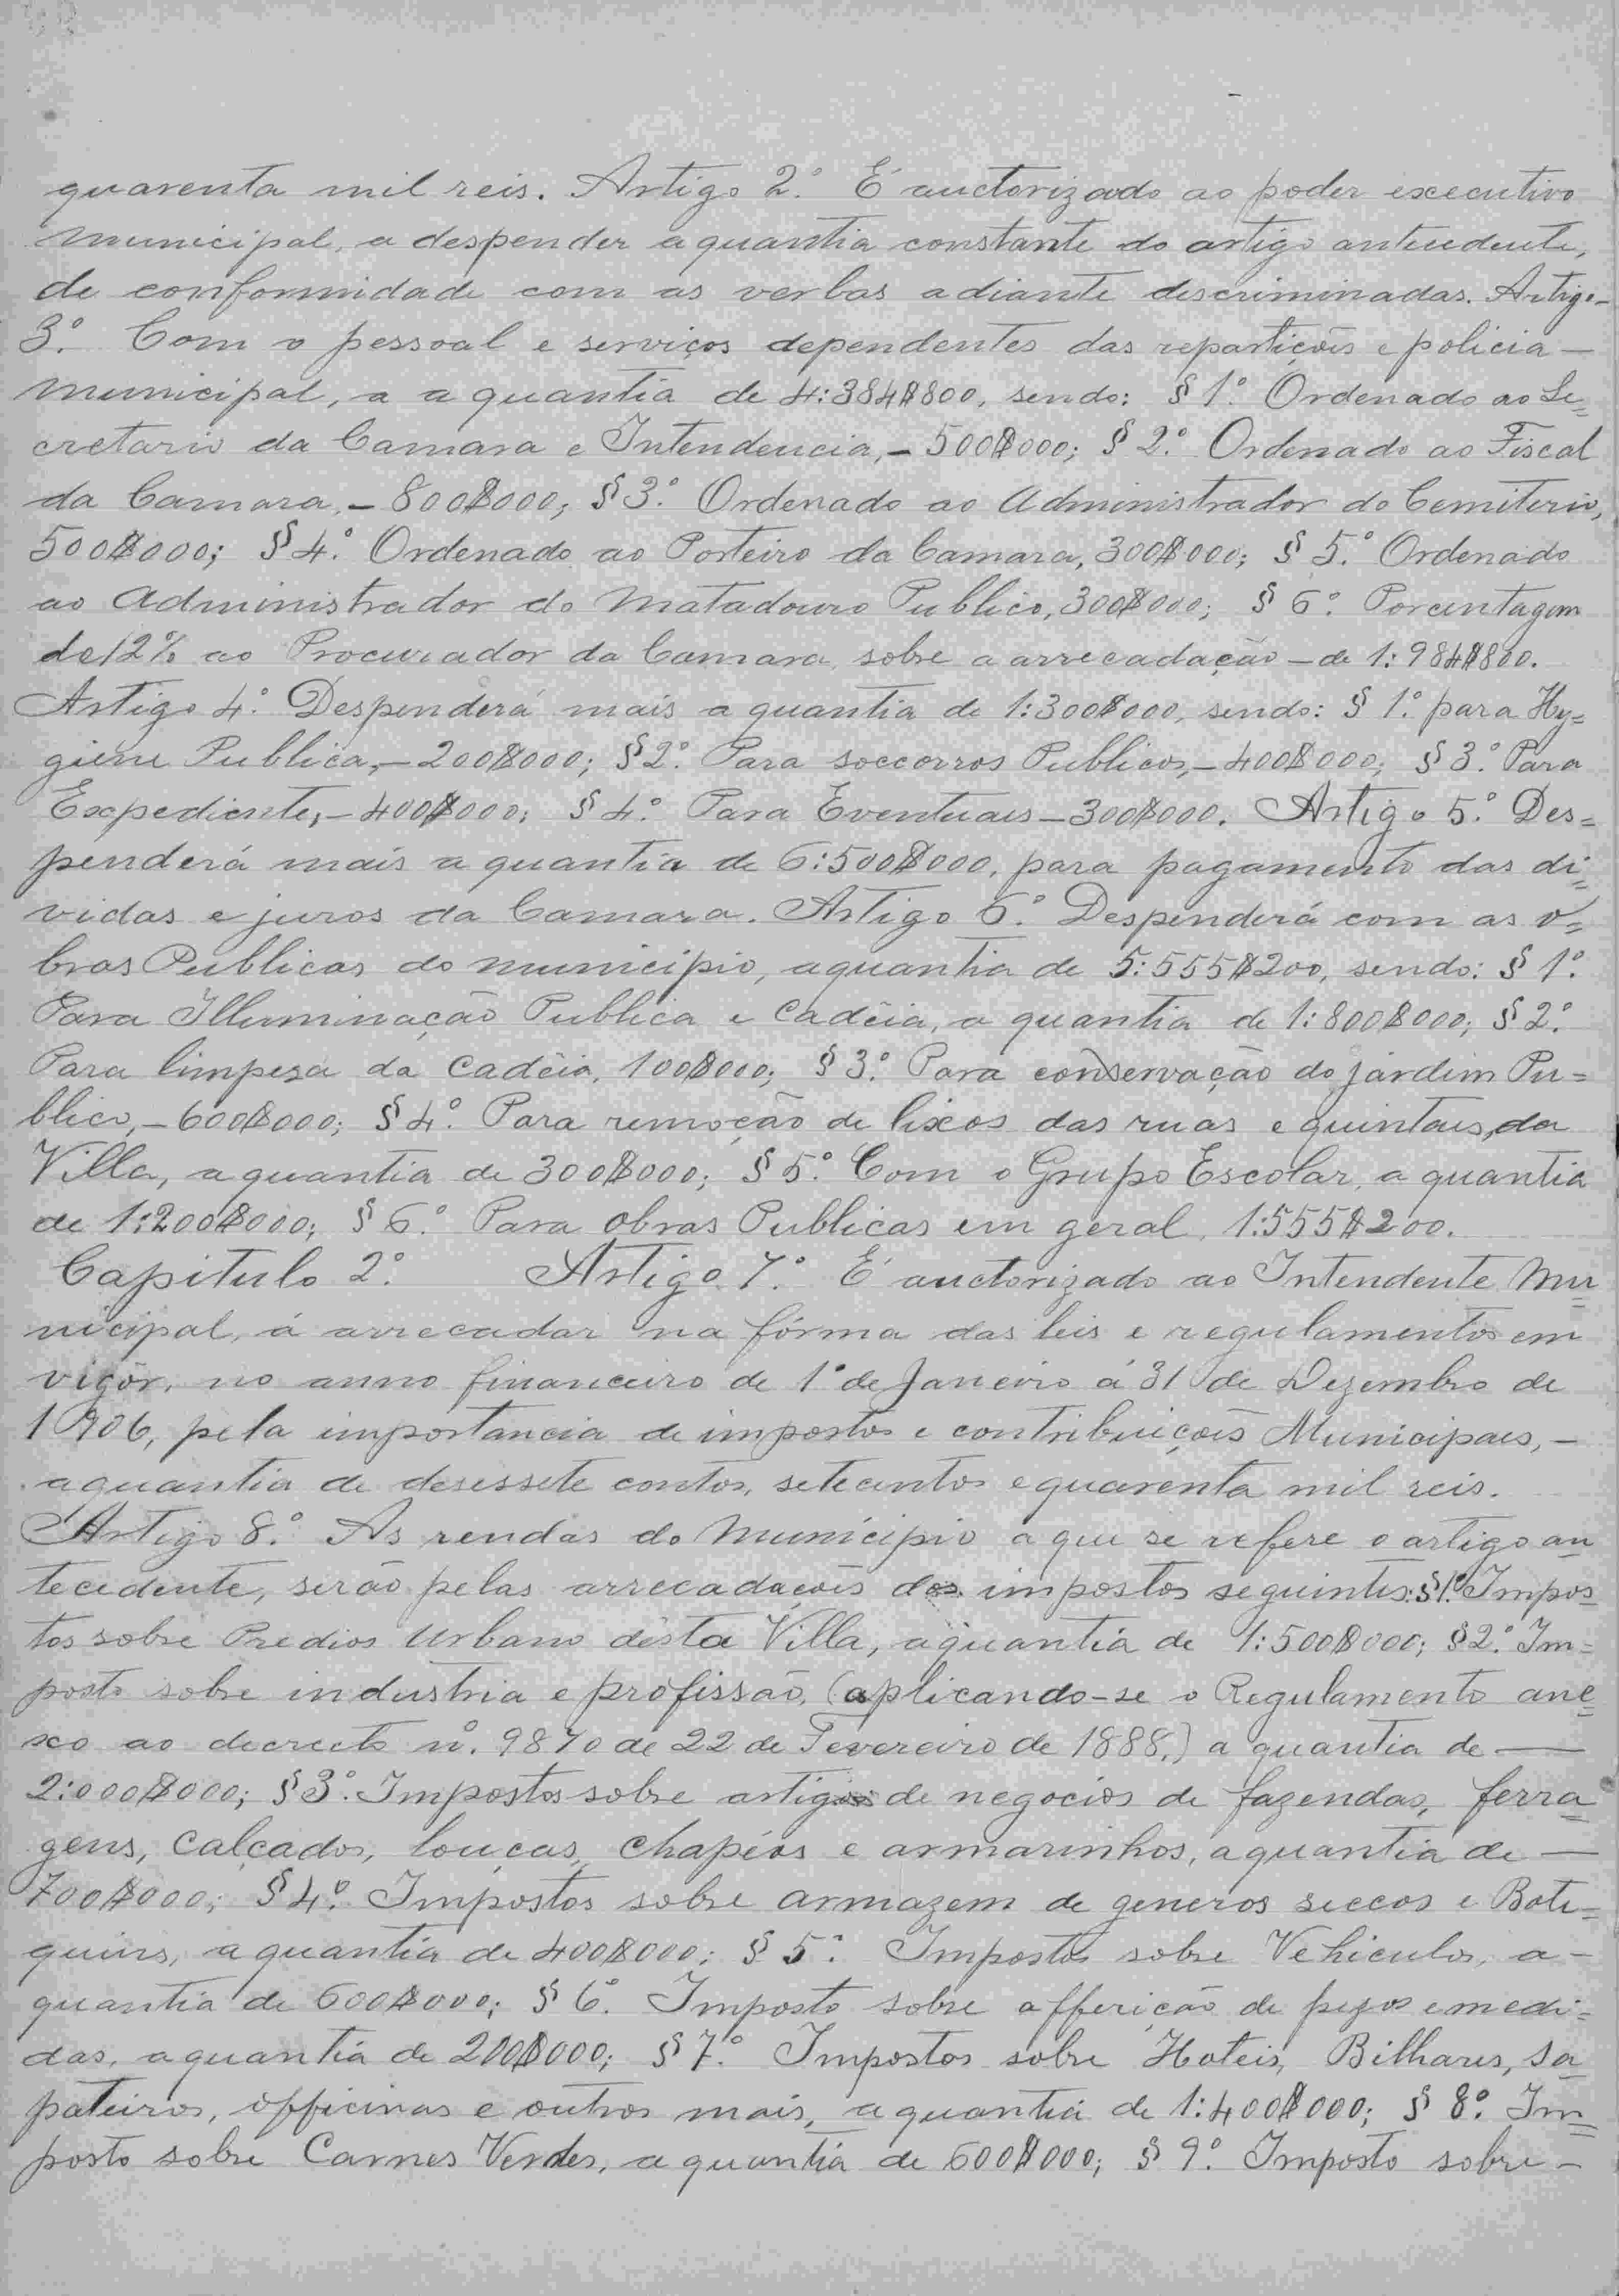 quarenta mil reis. Artigo 2.º É auctorizado ao poder executivo
municipal, a despender a quantia constante do artigo antecedente,
de conformidade com as verbas adiante descriminadas. Artigo—
3.º Com o pessoal e serviços dependentes das repartições e policia—
municipal, a a quantia de 4:384$800, sendo: § 1.º Ordenado ao Se=
cretario da Camara e Intendencia,—500$000; § 2.º Ordenado ao Fiscal
da Camara,—800$000; § 3.º Ordenado ao Administrador do Cemiterio,
500$000; § 4.º Ordenado ao Porteiro da Camara, 300$000; § 5.º Ordenado
ao Administrador do Matadouro Publico, 300$000; § 6.º Porcentagem
de 12% ao Procurador da Camara, sobre a arrecadação—de 1:984$800.
Artigo 4.º Despenderá mais a quantia de 1:300$000, sendo: § 1.º para Hy=
giene Publica,—200$000; § 2.º Para soccorros Publicos,—400$000; § 3.º Para
Expediente,—400$000; § 4.º Para Eventuais—300$000. Artigo 5.º Des=
penderá mais a quantia de 6:500$000, para pagamento das di=
vidas e juros da Camara. Artigo 6.º Despenderá com as o=
bras Publicas do municipio, a quantia de 5:555$200, sendo: § 1.º
Para Illuminação Publica e Cadêia, a quantia de 1:800$000; § 2.º
Para limpesa da Cadêia, 100$000; § 3.º Para conservação do jardim Pu=
blico,—600$000; § 4.º Para remoção de lixos das ruas e quintais, da
Villa, a quantia de 300$000; § 5.º Com o Grupo Escolar, a quantia
de 1:200$000; § 6.º Para obras Publicas em geral, 1:555$200.
Capitulo 2.º Artigo 7.º É auctorizado ao Intendente Mu=
nicipal, á arrecadar na fórma das leis e regulamentos em
vigôr, no anno financeiro de 1º de Janeiro á 31 de Dezembro de
1906, pela importancia de impostos e contribuições Municipaes,—
a quantia de desessete contos, setecentos e quarenta mil reis.
Artigo 8.º As rendas do Municipio a que se refere o artigo an=
tecedente, serão pelas arrecadações dos impostos seguintes: § 1.º Impos=
tos sobre Predios Urbano desta Villa, a quantia de 1:500$000; § 2.º Im=
posto sobre industria e profissão, (aplicando-se o Regulamento ane=
xo ao decreto nº. 9870 de 22 de Fevereiro de 1888,) a quantia de —
2:000$000; § 3.º Impostos sobre artigos de negocios de fazendas, ferra=
gens, calçados, louças, chapéos e armarinhos, a quantia de —
700$000; § 4.º Impostos sobre armazem de generos seccos e Bote=
quins, a quantia de 400$000; § 5.º Impostos sobre Vehiculos, a—
quantia de 600$000; § 6.º Imposto sobre afferição de pezos e medi=
das, a quantia de 200$000; § 7.º Impostos sobre Hoteis, Bilhares, Sa=
pateiros, officinas e outros mais, a quantia de 1:400$000; § 8.º Im=
posto sobre Carnes Verdes, a quantia de 600$000; § 9.º Imposto sobre—